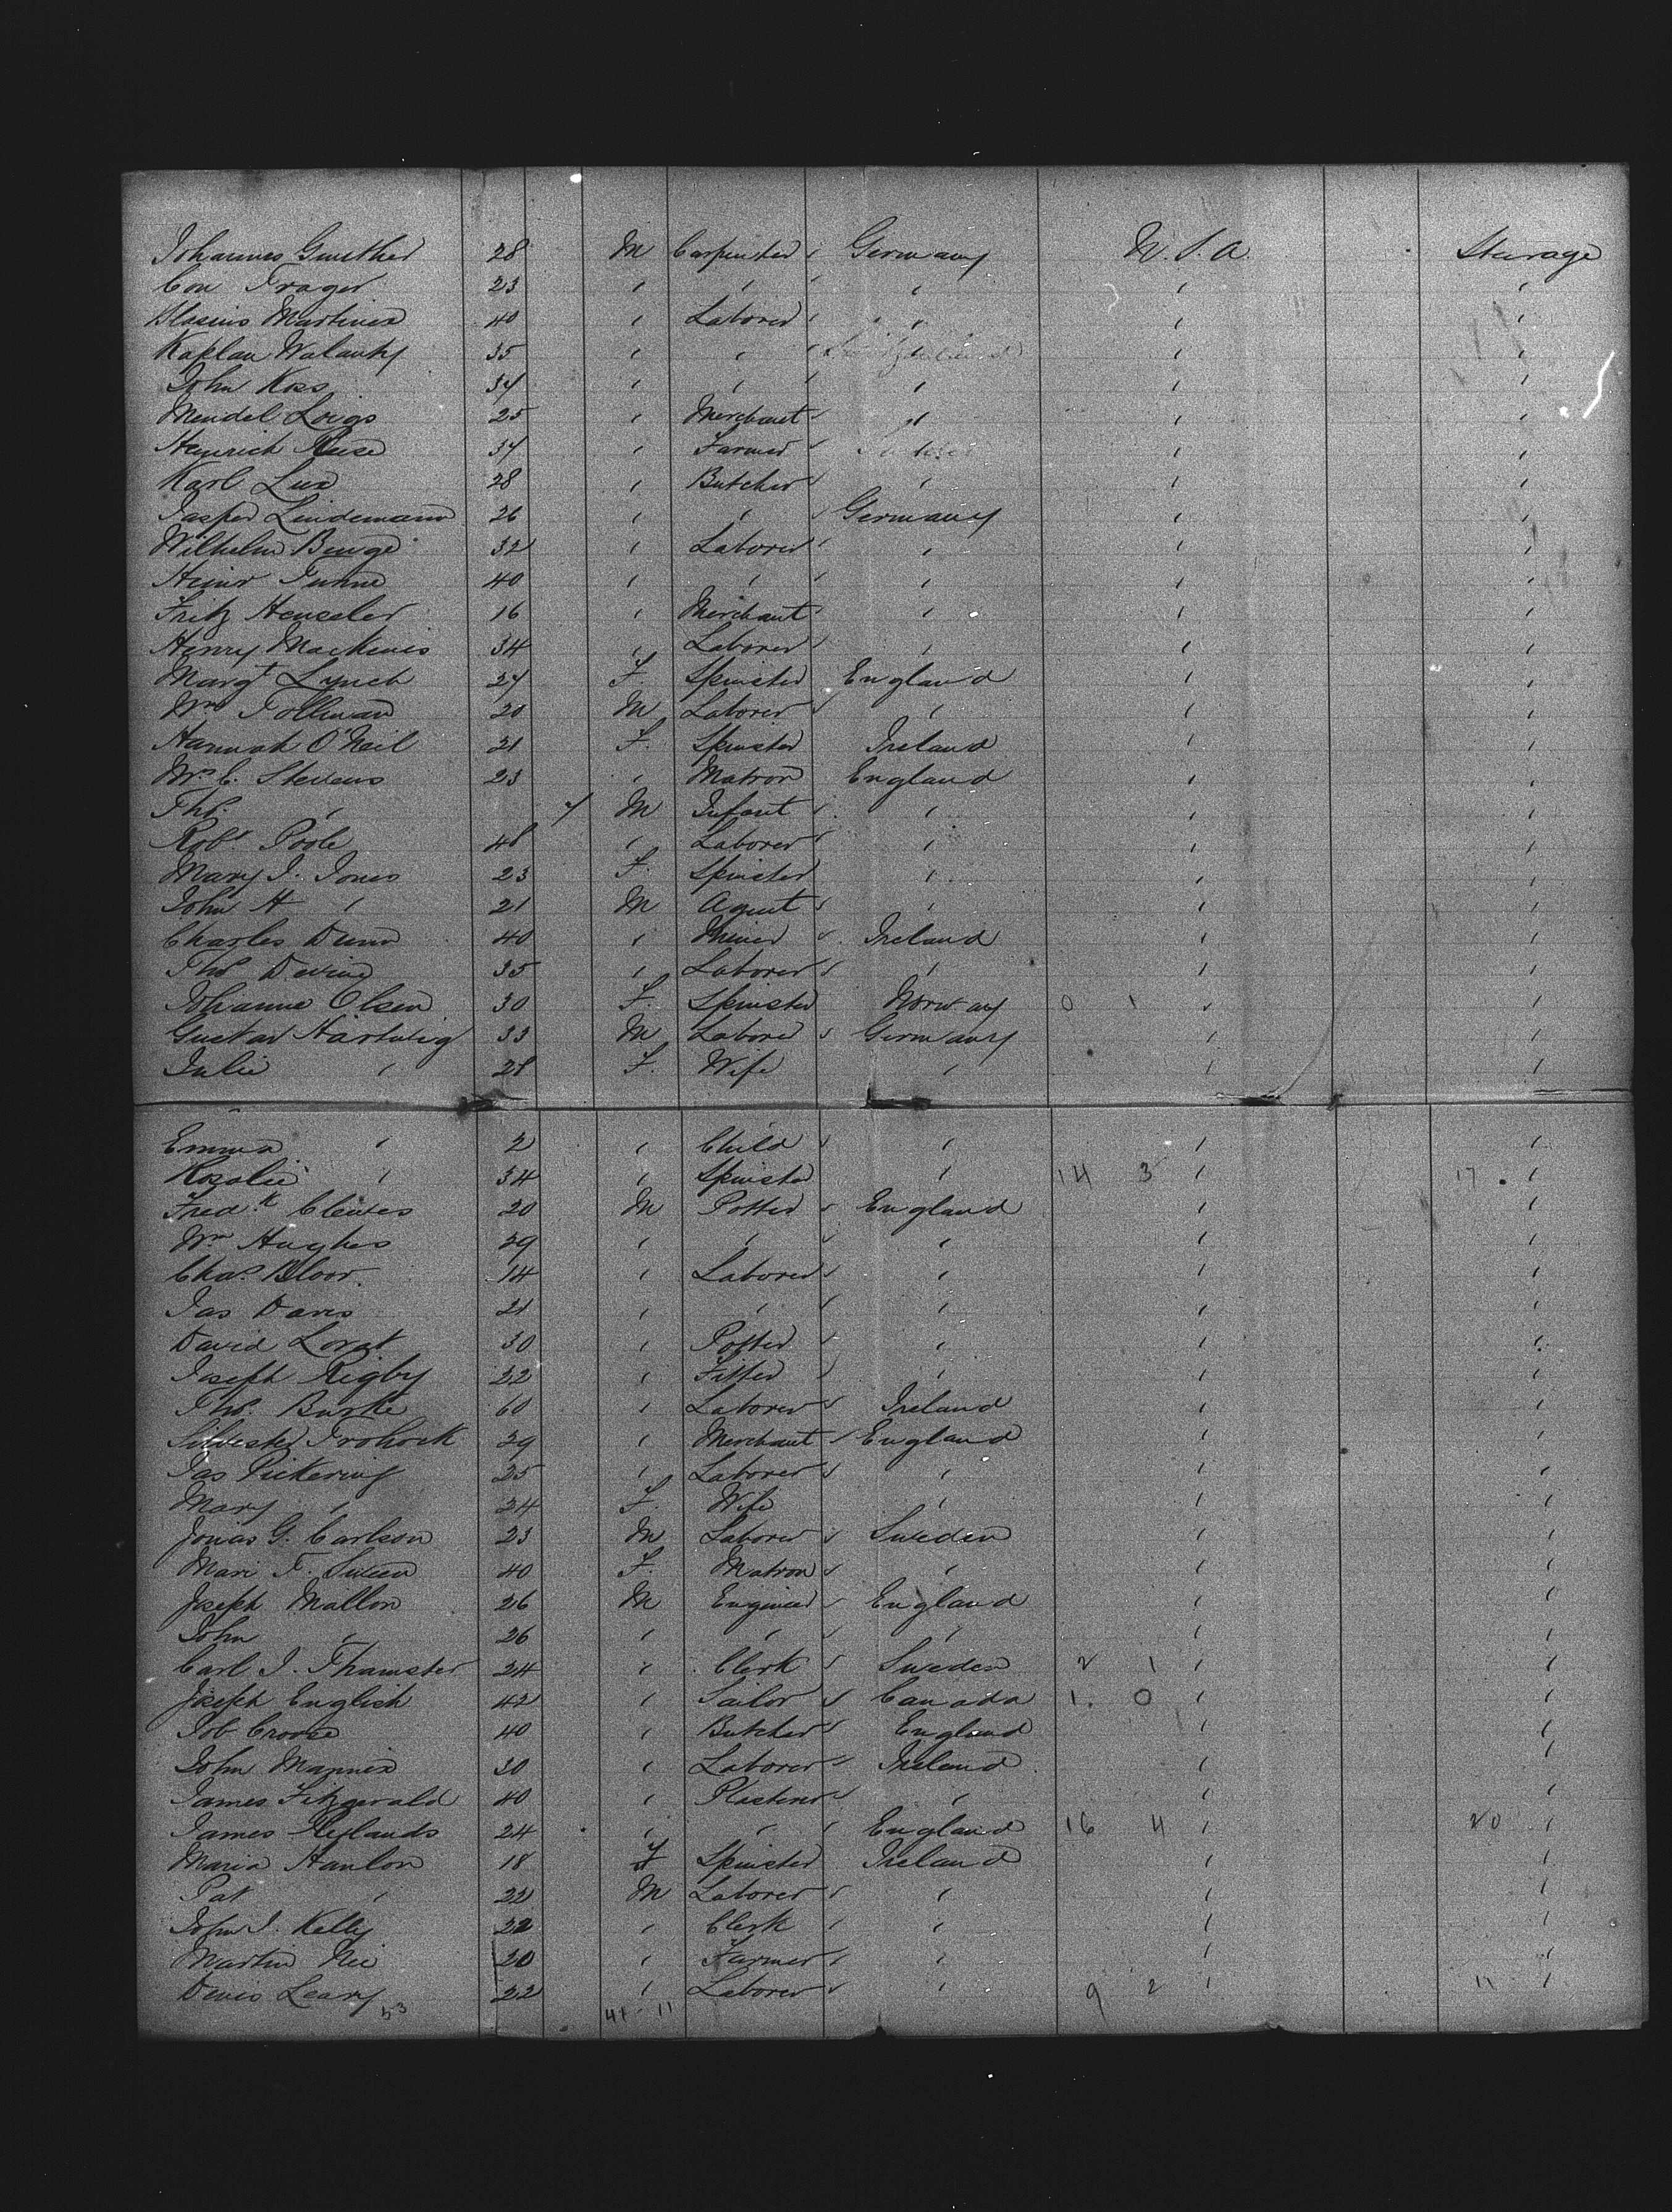 Johannes Gunther 28 M Carpenter Germany U.S.A. Steerage
Con Trager 23 " " " " "
Martines 40 " Laborer " " "
Kaplan Walanky 35 " " " "
John Koss 34 " " " " "
Mendel 25 " Merchant " " "
Heinrich 34 " Farmer " "
Karl Lux 28 " Butcher " " "
Casper Lindemann 26 " " Germany " "
Wilhelm Bunge 32 " Laborer " " "
Heinr 40 " " " " "
Fritz Henseler 16 " Merchant " " "
Henry 34 " Laborer " " "
Margt Lynch 27 F. Spinster England " "
Wm Tollman 20 M Laborer " " "
Hannah O'Neil 21 F. Spinster Ireland " "
Mrs C. Stevens 23 " Matron England " "
Thos. " 7 M Infant " " "
Robt Poole 48 " Laborer " " "
Mary J. Jones 23 F. Spinster " " "
John H " 21 M Agent " " "
Charles Dunn 40 " Miner Ireland " "
Thos Devine 35 " Laborer " " "
Johanne Olsen 30 F. Spinster Norway 0 1 " "
Gustav Hartwig 33 M Laborer Germany " "
Julie " 28 F. Wife " " "
Emma " 2 " Child " " "
Rosalie " 34 " Spinster " 14 3 " 17 "
Fredk Clewes 20 M Potter England " "
Wm Hughes 29 " " " " "
Chas Bloor. 14 " Laborer " " "
Jas Davis 21 " " " " "
David Lovat 30 " Potter " " "
Joseph Rigby 22 " Fitter " " "
Thos. Burke 60 " Laborer Ireland " "
Silvester Trohock 29 " Merchant England " "
Jas Pickering 25 " Laborer " " "
Mary " 24 F. Wife " " "
Jonas G. Carlson 23 M Laborer Sweden " "
Mari F. 40 F. Matron " " "
Joseph Mallon 26 M Engineer England " "
John " 26 " " " " "
Carl J. Thamster 24 " Clerk Sweden 2 1 " "
Joseph English 42 " Sailor Canada 1. 0 " "
Job Croose 40 " Butcher England " "
John Mannix 30 " Laborer Ireland " "
James Fitzgerald 40 " Plasterer " " "
James Hylands 24 " " England 16 4 " 20 "
Maria Hanlon 18 F Spinster Ireland " "
Pat " 22 M Laborer " " "
John J. Kelly 22 " Clerk " " "
Martin Nee 20 " Farmer " " "
Denis Leary 22 " Laborer " 9 2 " 11 "
53 41 - 11